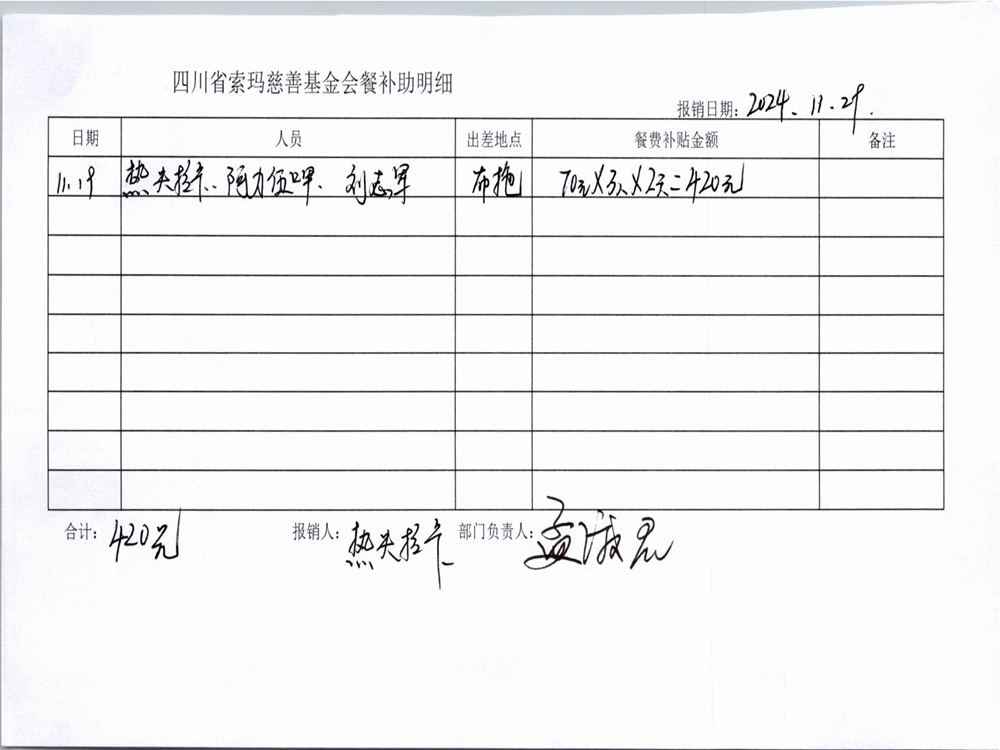 四川省索玛慈善基金会餐补助明细
报销日期：2024.11.29.
日期 人员 出差地点 餐费补贴金额 备注
11.19 热夫拉卡、阿力伍呷、刘志军 布拖 70元×3人×2天=420元
合计：420元 报销人：热夫拉卡 部门负责人：孟